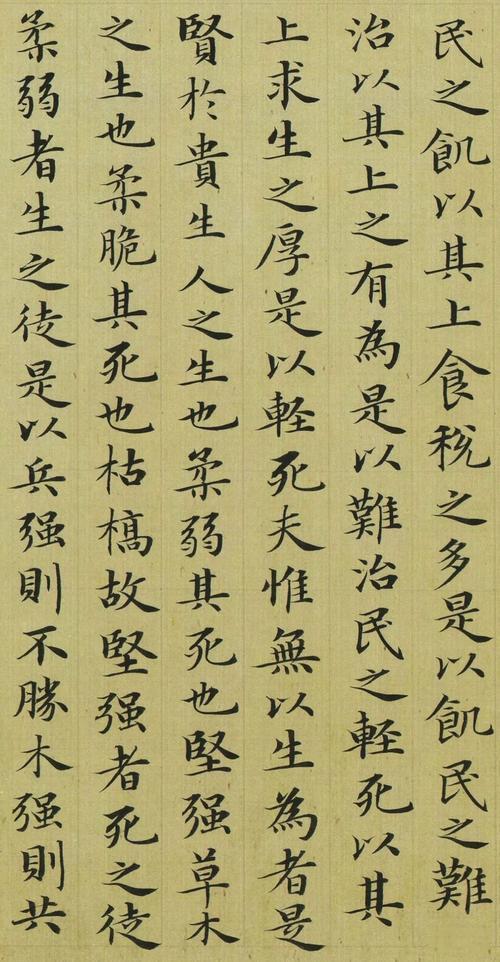 民之飢以其上食稅之多是以飢民之難
治以其上之有為是以難治民之輕死以其
上求生之厚是以輕死夫惟無以生為者是
賢於貴生人之生也柔弱其死也堅强草木
之生也柔脆其死也枯槁故堅强者死之徒
柔弱者生之徒是以兵强則不勝木强則共